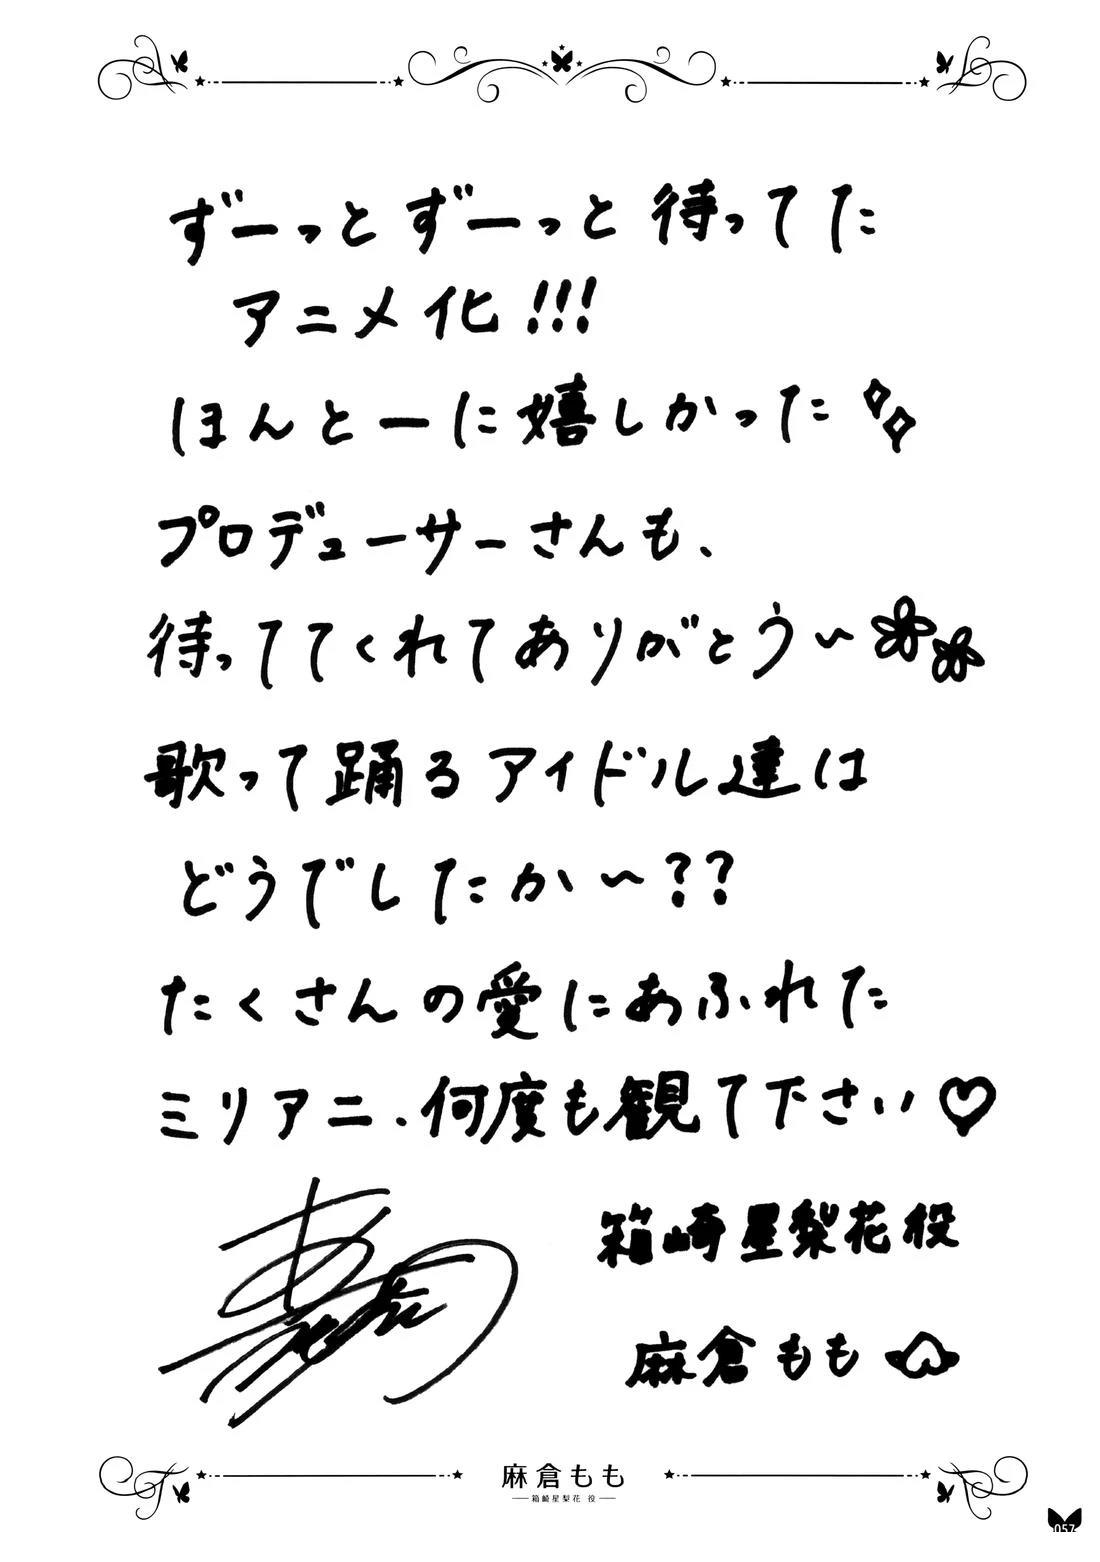 ずーっとずーっと待ってた
アニメ化!!!
ほんとーに嬉しかった
プロデューサーさんも、
待っててくれてありがとう〜
歌って踊るアイドル達は
どうでしたか〜??
たくさんの愛にあふれた
ミリアニ、何度も観て下さい♡
箱崎星梨花役
麻倉もも
麻倉もも
箱崎星梨花 役
057